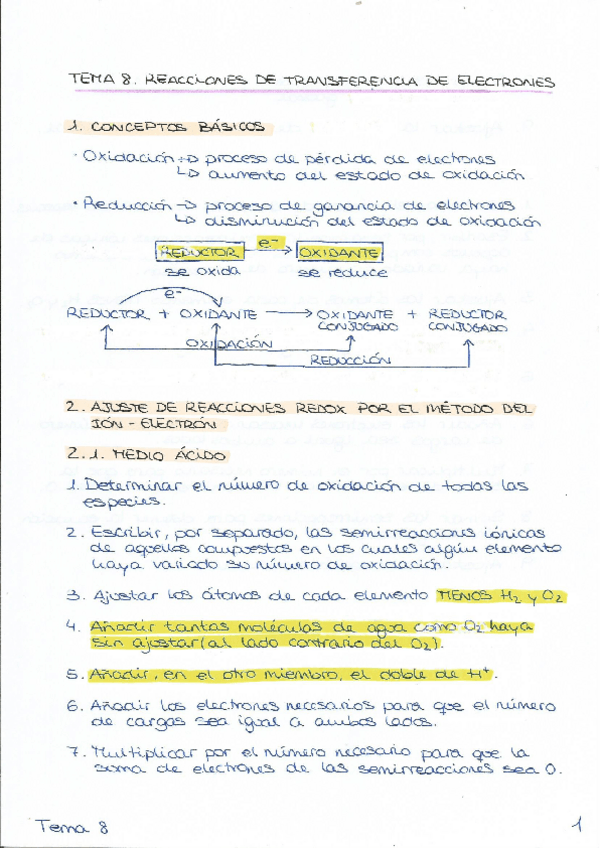 TEMA 8. REACCIONES DE TRANSFERENCIA DE ELECTRONES
1. CONCEPTOS BÁSICOS
· Oxidación → proceso de pérdida de electrones
↳ aumento del estado de oxidación
· Reducción → proceso de ganancia de electrones
↳ disminución del estado de oxidación
REDUCTOR e⁻→ OXIDANTE
se oxida se reduce
e⁻
REDUCTOR + OXIDANTE → OXIDANTE + REDUCTOR
CONJUGADO CONJUGADO
OXIDACIÓN
REDUCCIÓN
2. AJUSTE DE REACCIONES REDOX POR EL MÉTODO DEL
IÓN - ELECTRÓN
2.1. MEDIO ÁCIDO
1. Determinar el número de oxidación de todas las
especies.
2. Escribir, por separado, las semirreacciones iónicas
de aquellos compuestos en los cuales algún elemento
haya variado su número de oxidación.
3. Ajustar los átomos de cada elemento MENOS H₂ y O₂
4. Añadir tantas moléculas de agua como O₂ haya
sin ajustar (al lado contrario del O₂).
5. Añadir, en el otro miembro, el doble de H⁺.
6. Añadir los electrones necesarios para que el número
de cargas sea igual a ambos lados.
7. Multiplicar por el número necesario para que la
suma de electrones de las semirreacciones sea 0.
Tema 8 1